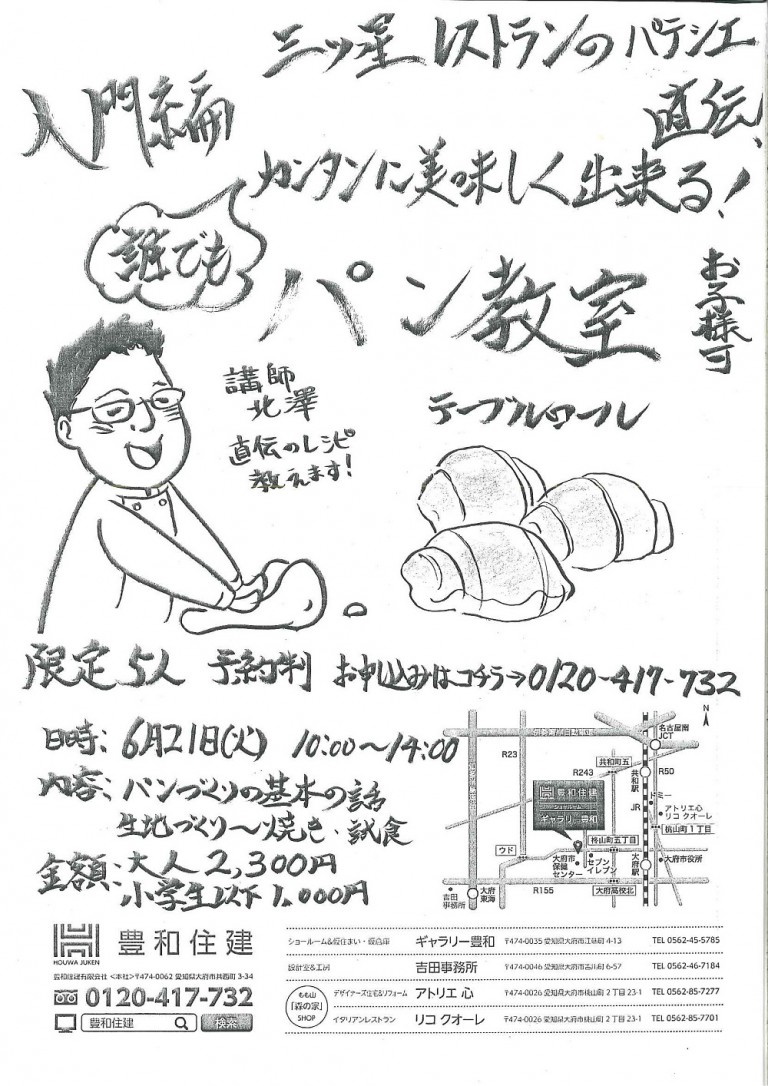 三ッ星 レストランの パテシエ
直伝!
入門編
カンタンに美味しく出来る!
誰でも
パン教室
お子様可
講師
北澤
直伝のレシピ
教えます!
テーブルロール
限定5人 予約制 お申込みはコチラ→0120-417-732
日時: 6月21日(火) 10:00〜14:00
内容: パンづくりの基本の話
生地づくり〜焼き、試食
金額: 大人 2,300円
小学生以下 1,000円
N
名古屋南
JCT
R23
共和町五
R243
共和駅
R50
豊和住建
ギャラリー豊和
ドミー
JR
アトリエ心
リコ クオーレ
桃山町1丁目
柊山町五丁目
ウド
大府市
保健
センター
セブン
イレブン
大府駅
大府市役所
吉田
事務所
大府
東海
R155
大府高校北
HOUWA JUKEN
豊和住建
豊和住建有限会社 <本社>〒474-0062 愛知県大府市共西町 3-34
0120-417-732
豊和住建 検索
ショールーム&仮住まい・仮倉庫 ギャラリー豊和 〒474-0035 愛知県大府市江端町 4-13 TEL 0562-45-5785
設計室&工房 吉田事務所 〒474-0046 愛知県大府市吉川町 6-57 TEL 0562-46-7184
もも山
「森の家」
SHOP
デザイナーズ住宅&リフォーム アトリエ 心 〒474-0026 愛知県大府市桃山町 2 丁目 23-1 TEL 0562-85-7277
イタリアンレストラン リコ クオーレ 〒474-0026 愛知県大府市桃山町 2 丁目 23-1 TEL 0562-85-7701